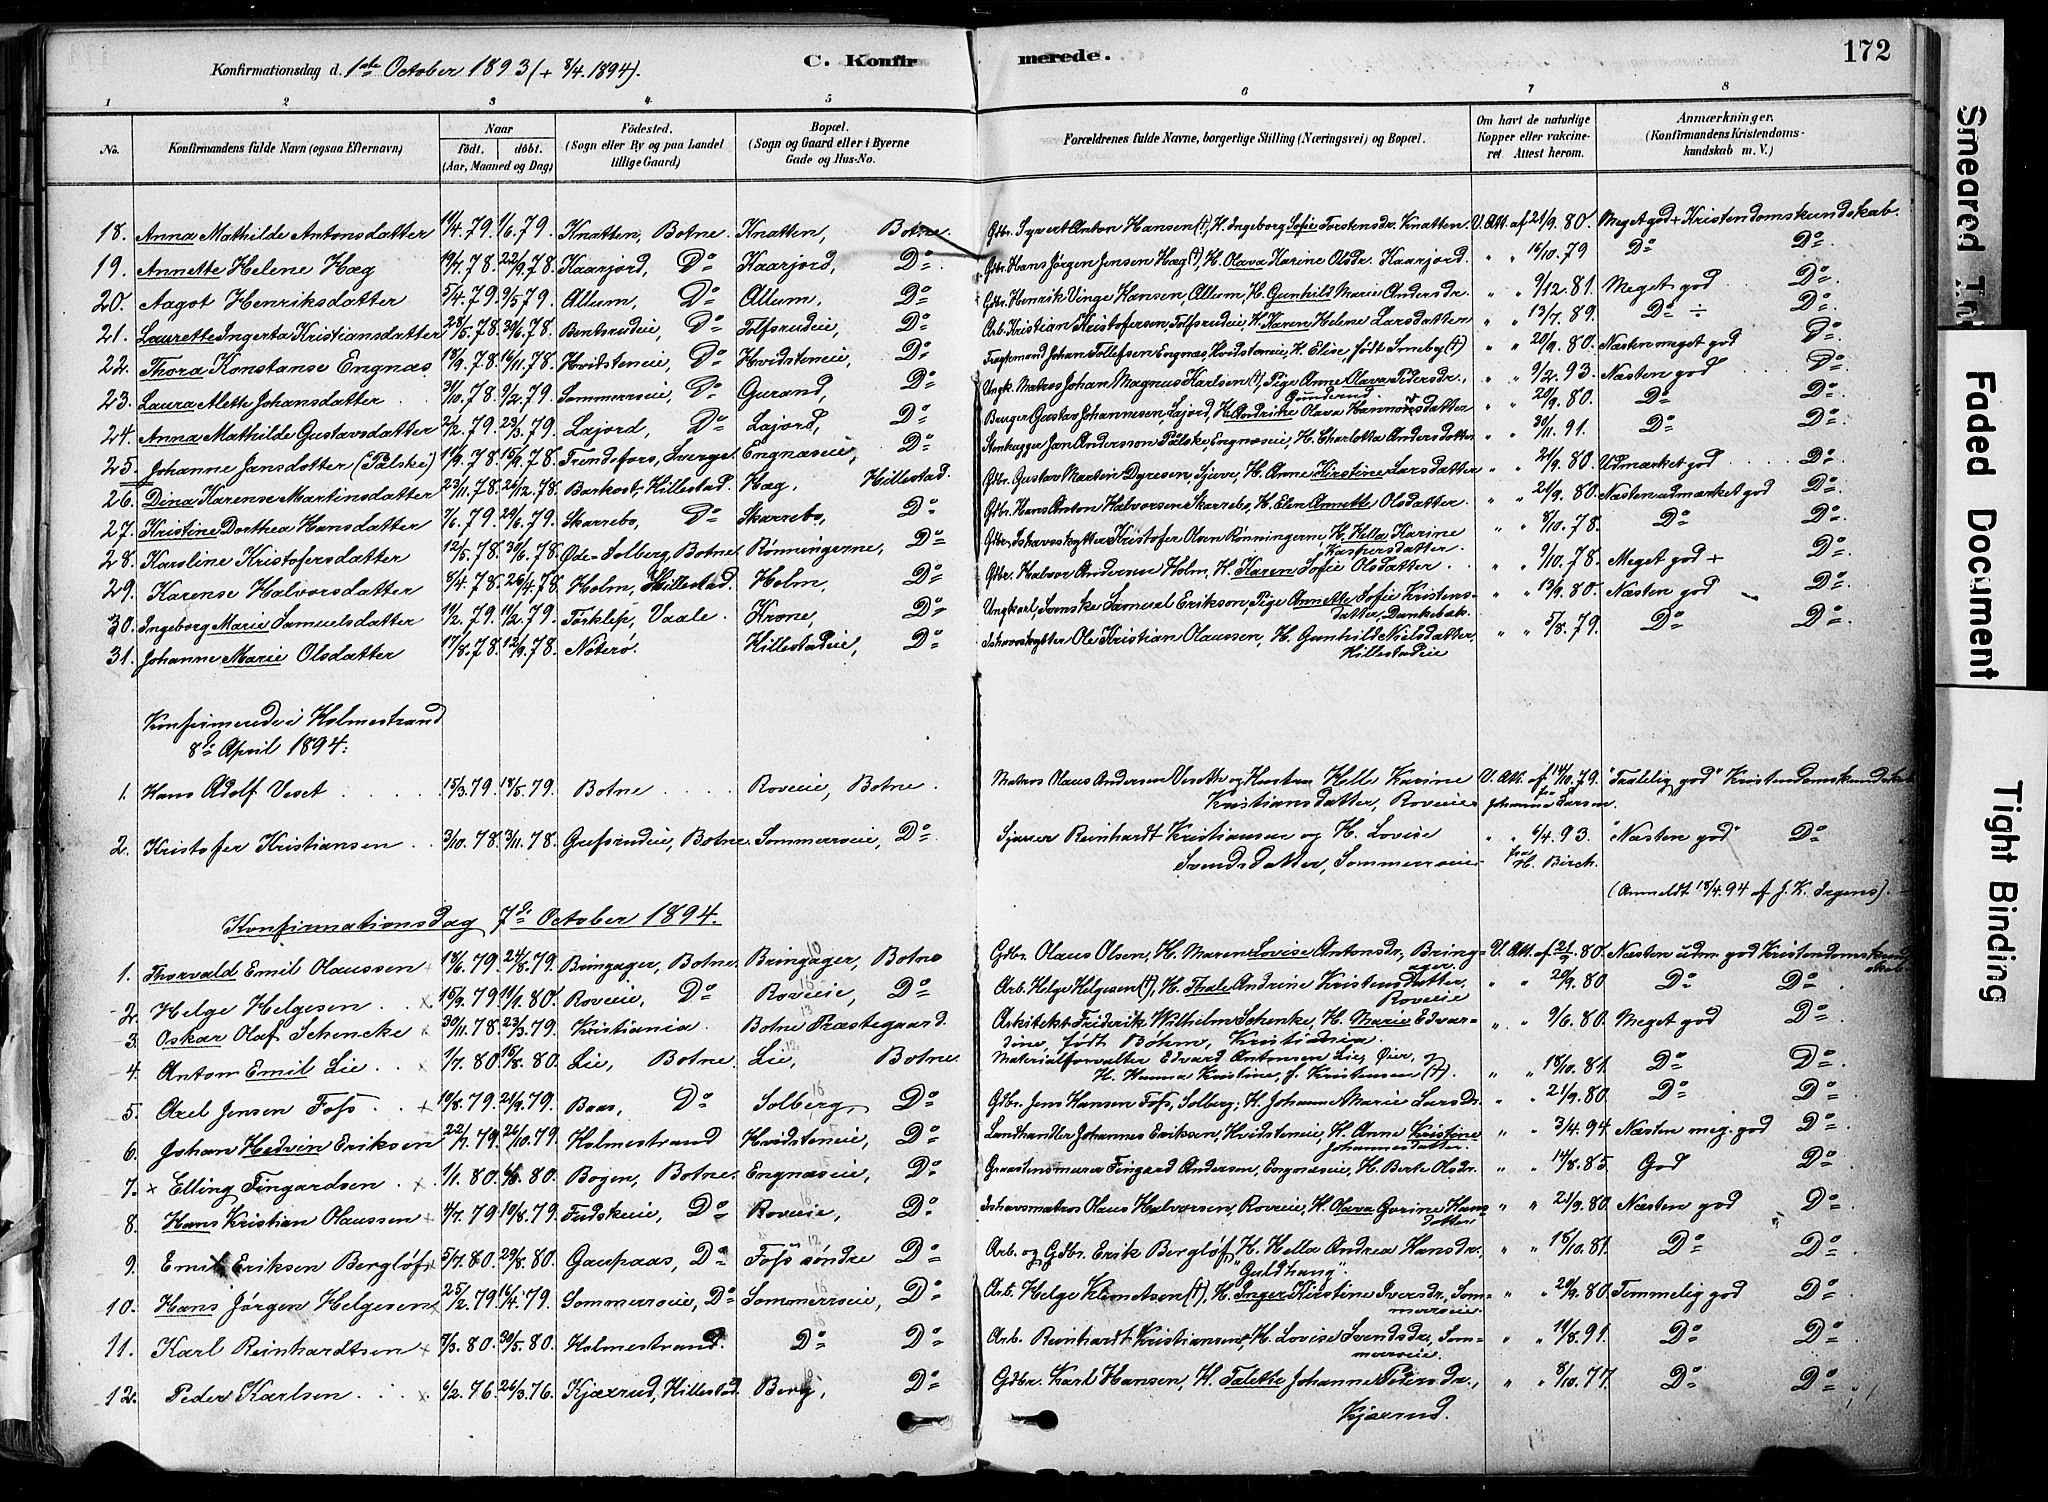 172
Konfirmationsdag d. 1ste October 1893 (+ 8/4. 1894).
C. Konfirmerede.
1 2 3 4. 5 6 7 8
No. Konfirmandens fulde Navn (ogsaa Efternavn) Naar født. døbt. (Aar, Maaned og Dag) Födested. (Sogn eller By og paa Landet tillige Gaard) Bopæl. (Sogn og Gaard eller i Byerne Gade og Hus-No. Forældrenes fulde Navne, borgerlige Stilling (Næringsvei) og Bopæl. Om havt de naturlige Kopper eller vakcineret Attest herom. Anmærkninger. (Konfirmandens Kristendomskundskab m. V.)
18. Anna Mathilde Antonsdatter 11/4.79. 1/6.79. Knatten, Botne. Knatten, Botne. Gdbr. Syvert Anton Hansen (†), H. Ingeborg Sofie Torstensdr. Knatten. V. Att. af 21/9. 80. Meget god + Kristendomskundskab.
19. Annette Helene Hæg 19/7.78. 22/9.78. Kaarjord, Do Kaarjord, Do Gbr. Hans Jörgen Jensen Hæg (†), H. Olava Karine Olsdr. Kaarjord. " " 15/10. 79 Do Do
20. Aagot Henriksdatter 5/4.79. 9/5 79. Allum, Do Allum, Do Gdbr. Henrik Vinge Hansen, Allum, H. Gunhild Marie Andersdr. " " 9/12. 81. Meget god Do
21. Laurette Ingerta Kristiansdatter 28/5.78. 30/6.78. Bentsrudeie, Do Tolfsrudeie, Do Arb. Kristian Kristofersen, Tolfsrudeie, H. Karen Helene Larsdatter " " 13/7. 89. Do ÷ Do
22. Thora Konstanse Engnæs 18/9.78. 16/11.78. Hvidsteneie, Do Hvidsteneie, Do Johan Tollefsen Engnæs, Hvidsteneie, H. Elise, født Smeby (†) " " 20/9. 80. Næsten meget god Do
23. Laura Alette Johansdatter 31/10.78. 9/2.79. Sommerroeie, Do Gurand, Do Ungk. Matros Johan Magnus Karlsen (†), Pige Anne Olava Pedersdr., " " 9/2. 93. Næsten god Do
24. Anna Mathilde Gustavsdatter 2/2.79. 23/3.79. Lajord, Do Lajord, Do Bruger Gustav Johannesen, Lajord, H. Andrine Olava Hannoresdatter " " 20/9. 80. Do Do
25. Johanne Jansdatter (Pålske) 11/9.78. 15/9.78. Trendefors, Sverge. Engnæseie, Do Stenhugger Jan Andersson Pålske, Engnæseie, H. Charlotta Andersdotter " " 30/11. 91. Do Do
26. Dina Karense Martinsdatter 23/11.78. 26/12.78. Barkost, Hillestad. Hæg, Hillestad. Gdbr. Gustav Martin Dyresen, Sjuve, H. Anne Kirstine Larsdatter " " 21/9. 80. Udmærket god Do
27. Kristine Dorthea Hansdatter 7/6.79. 29/6.79. Skarrebo, Do Skarrebo, Do Gdbr. Hans Anton Halvorsen Skarrebo, H. Elen Annette Olsdatter. " " 21/9. 80. Næsten udmærket god Do
28. Karoline Kristofersdatter 12/5.78. 30/6.78. Øde-Solberg, Botne. Rønningerne, Do Ishavsskytter Kristofer Olsen Rønningerne, H. Hella Karine Kaspersdatter. " " 8/10. 78. Do Do
29. Karense Halvorsdatter 8/4.78. 26/4.78. Holm, Hillestad. Holm, Do Gbr. Halvor Andersen Holm, H. Karen Sofie Olsdatter. " " 9/10. 78. Meget god + Do
30. Ingeborg Marie Samuelsdatter 11/2.79. 11/2.79. Förklep, Vaale. Krone, Do Ungkarl, Svenske Samuel Erikson, Pige Annette Sofie Kristensdatter, Dankebæk. " " 13/9. 80. Næsten god Do
31. Johanne Marie Olsdatter 17/8.78. 12/9.78. Nøterø. Hillestadeie, Do Ishavsskytter Ole Kristian Olaussen, H. Gunhild Nielsdatter, Hillestadeie " " 5/8. 79. Do Do
Konfirmerede i Holmestrand
8de April 1894:
1. Hans Adolf Veset 15/3.79. 18/5.79. Botne Roveie, Botne. Matros Olaus Andersen Veseth og Hustru Helle Karine Kristiansdatter, Roveie V. Att. af 14/10.79. fra Johanne Larsen. "Taalelig god" Kristendomskundskab
2. Kristofer Kristiansen 3/10.78. 3/11.78. Grefsrudeie, Botne. Sommerroeie, Do Sjauer Reinhardt Kristiansen og H. Lovise Svendsdatter, Sommerroeie " " 6/4. 93. fra H. Birch. "Næsten god" Do
(Anmeldt 18/4.94 af J. K. Irgens).
Konfirmationsdag 7de October 1894.
1. Thorvald Emil Olaussen 18/6.79. 24/8.79. Bringager, Botne. Bringager, Botne Gdbr. Olaus Olsen, H. Maren Lovise Antonsdr., Bringager. V. Att. af 21/9. 80. Næsten udm. god Kristendomskundskab.
2. Helge Helgesen 15/9.79. 11/1.80. Roveie, Do Roveie, Do Arb. Helge Helgesen (†), H. Thale Andrine Kristensdatter, Roveie " " 20/9. 80 Do Do
3. Oskar Olaf Schencke 30/11.78. 23/3.79. Kristiania. Botne Præstegaard. Arkitekt Friderik Wilhelm Schenke, H. Marie Edvardine, født Bøhm, Kristiania. " " 9/6. 80. Meget god Do
4. Anton Emil Lie 1/7.80. 15/8.80. Lie, Botne. Lie, Botne. Materialforvalter Edvard Antonsen Lie, Øier, og H. Hanna Kristine, f. Kristensen (†). " " 18/10. 81. Do Do
5. Axel Jensen Fofs 10/8.79. 21/9.79. Baas, Do Solberg, Do Gdbr. Jens Hansen Fofs, Solberg, H. Johanne Marie Larsdr. " " 21/9. 80. Do Do
6. Johan Hedvin Eriksen 22/7.79. 26/10.79. Holmestrand Hvidsteneie, Do Landhandler Johannes Eriksen, Hvidsteneie, H. Anne Kristine Johannesdatter. " " 3/4. 94 Næsten meg. god Do
7. × Elling Fingardsen 1/1.80. 6/3.80. Bogen, Botne. Engnæseie, Do Graastensmurer Fingard Andersen, Engnæseie, H. Berte Olsdr. " " 14/8. 85. God Do
8. Hans Kristian Olaussen 11/7.79 10/8.79. Fudskeie, Do Roveie, Do Ishavsmatros Olaus Halvorsen, Roveie, H. Olava Gurine Hansdatter " " 21/9. 80. Næsten god Do
9. Emil Eriksen Berglöf 5/7.80. 29/8.80. Gaupaas, Do Fofs söndre Do Arb. og Gdbr. Erik Berglöf, H. Hella Andrea Hansdr., "Guldhaug". " " 15/10. 81. Do Do
10. Hans Jörgen Helgesen 25/2.79. 16/4.79. Sommerroeie, Do Sommerroeie, Do Arb. Helge Klemetsen (†), H. Inger Kirstine Iversdr., Sommerroeie. " " 20/9. 80. Temmelig god Do
11. Karl Reinhardtsen 7/3.80. 30/5.80. Holmestrand. Do Do Arb. Reinhardt Kristiansen, H. Lovise Svendsdr., Sommerroeie. " " 11/8. 91. Do Do
12. Peder Karlsen 6/2.76. 26/3.76. Kjærrud, Hillestad. Berg, Do Gdbr. Karl Hansen, H. Talette Johanne Petersdr., Kjærrud. " " 8/10. 77. Do Do
Smeared
Faded Document
Tight Binding